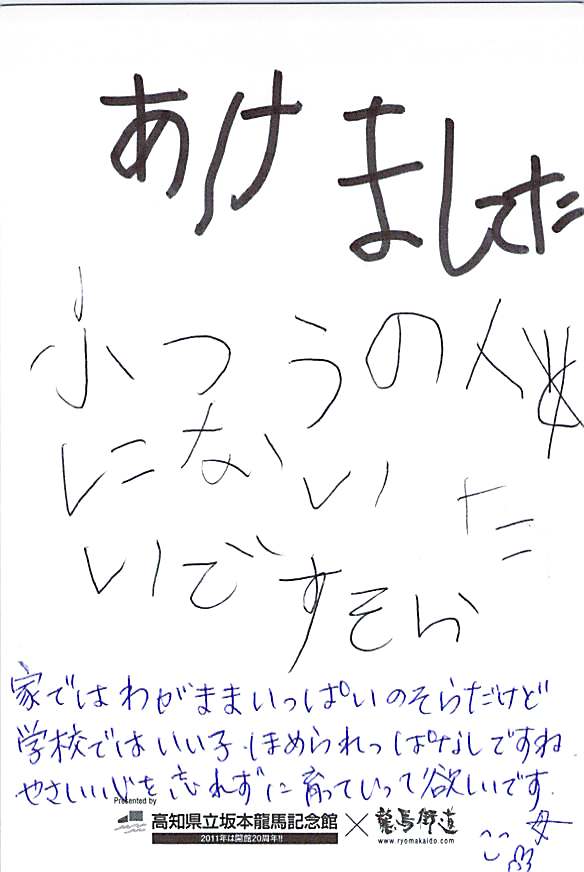 あけました
ふつうの人
にないた
いですそら
家ではわがままいっぱいのそらだけど
学校ではいい子.ほめられっぱなしですね.
やさしい心を忘れずに育っていって欲しいです.
母
Presented by
高知県立坂本龍馬記念館×龍馬街道
2011年は開館20周年!! www.ryomakaido.com